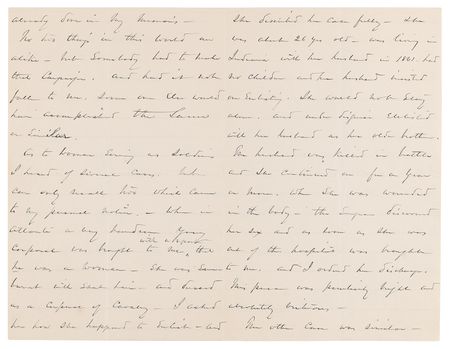 already done in my Memoirs —
No two things in this world are
alike — but Somebody had to make
that Campaign. and had it not
fallen to me. some one Else would
have accomplished the Same
or Similar.
As to Women Serving as Soldiers
I heard of Several Cases. but
can only recall two which came
to my personal notice. — When in
Atlanta a very handsome young
Corporal was brought to me, with a report that
he was a Woman — She was
burnt with and
as a Corporal of Cavalry — I asked
her how she happened to Enlist — and
She described her case fully — She
was about 26 years old — was living in
Indiana with her husband in 1861. had
no children and her husband insisted
on Enlisting. She would not be Stay
alone. and under Enlisted
with her husband as his older brother.
The husband was killed in battle
and She continued on for a year
or more. When she was wounded
in the body — the Surgeon discovered
her sex and as soon as she was
out of the hospital was brought
to me. and I ordered her discharge.
This person was peculiarly bright and
absolutely —
The other Case was similar —